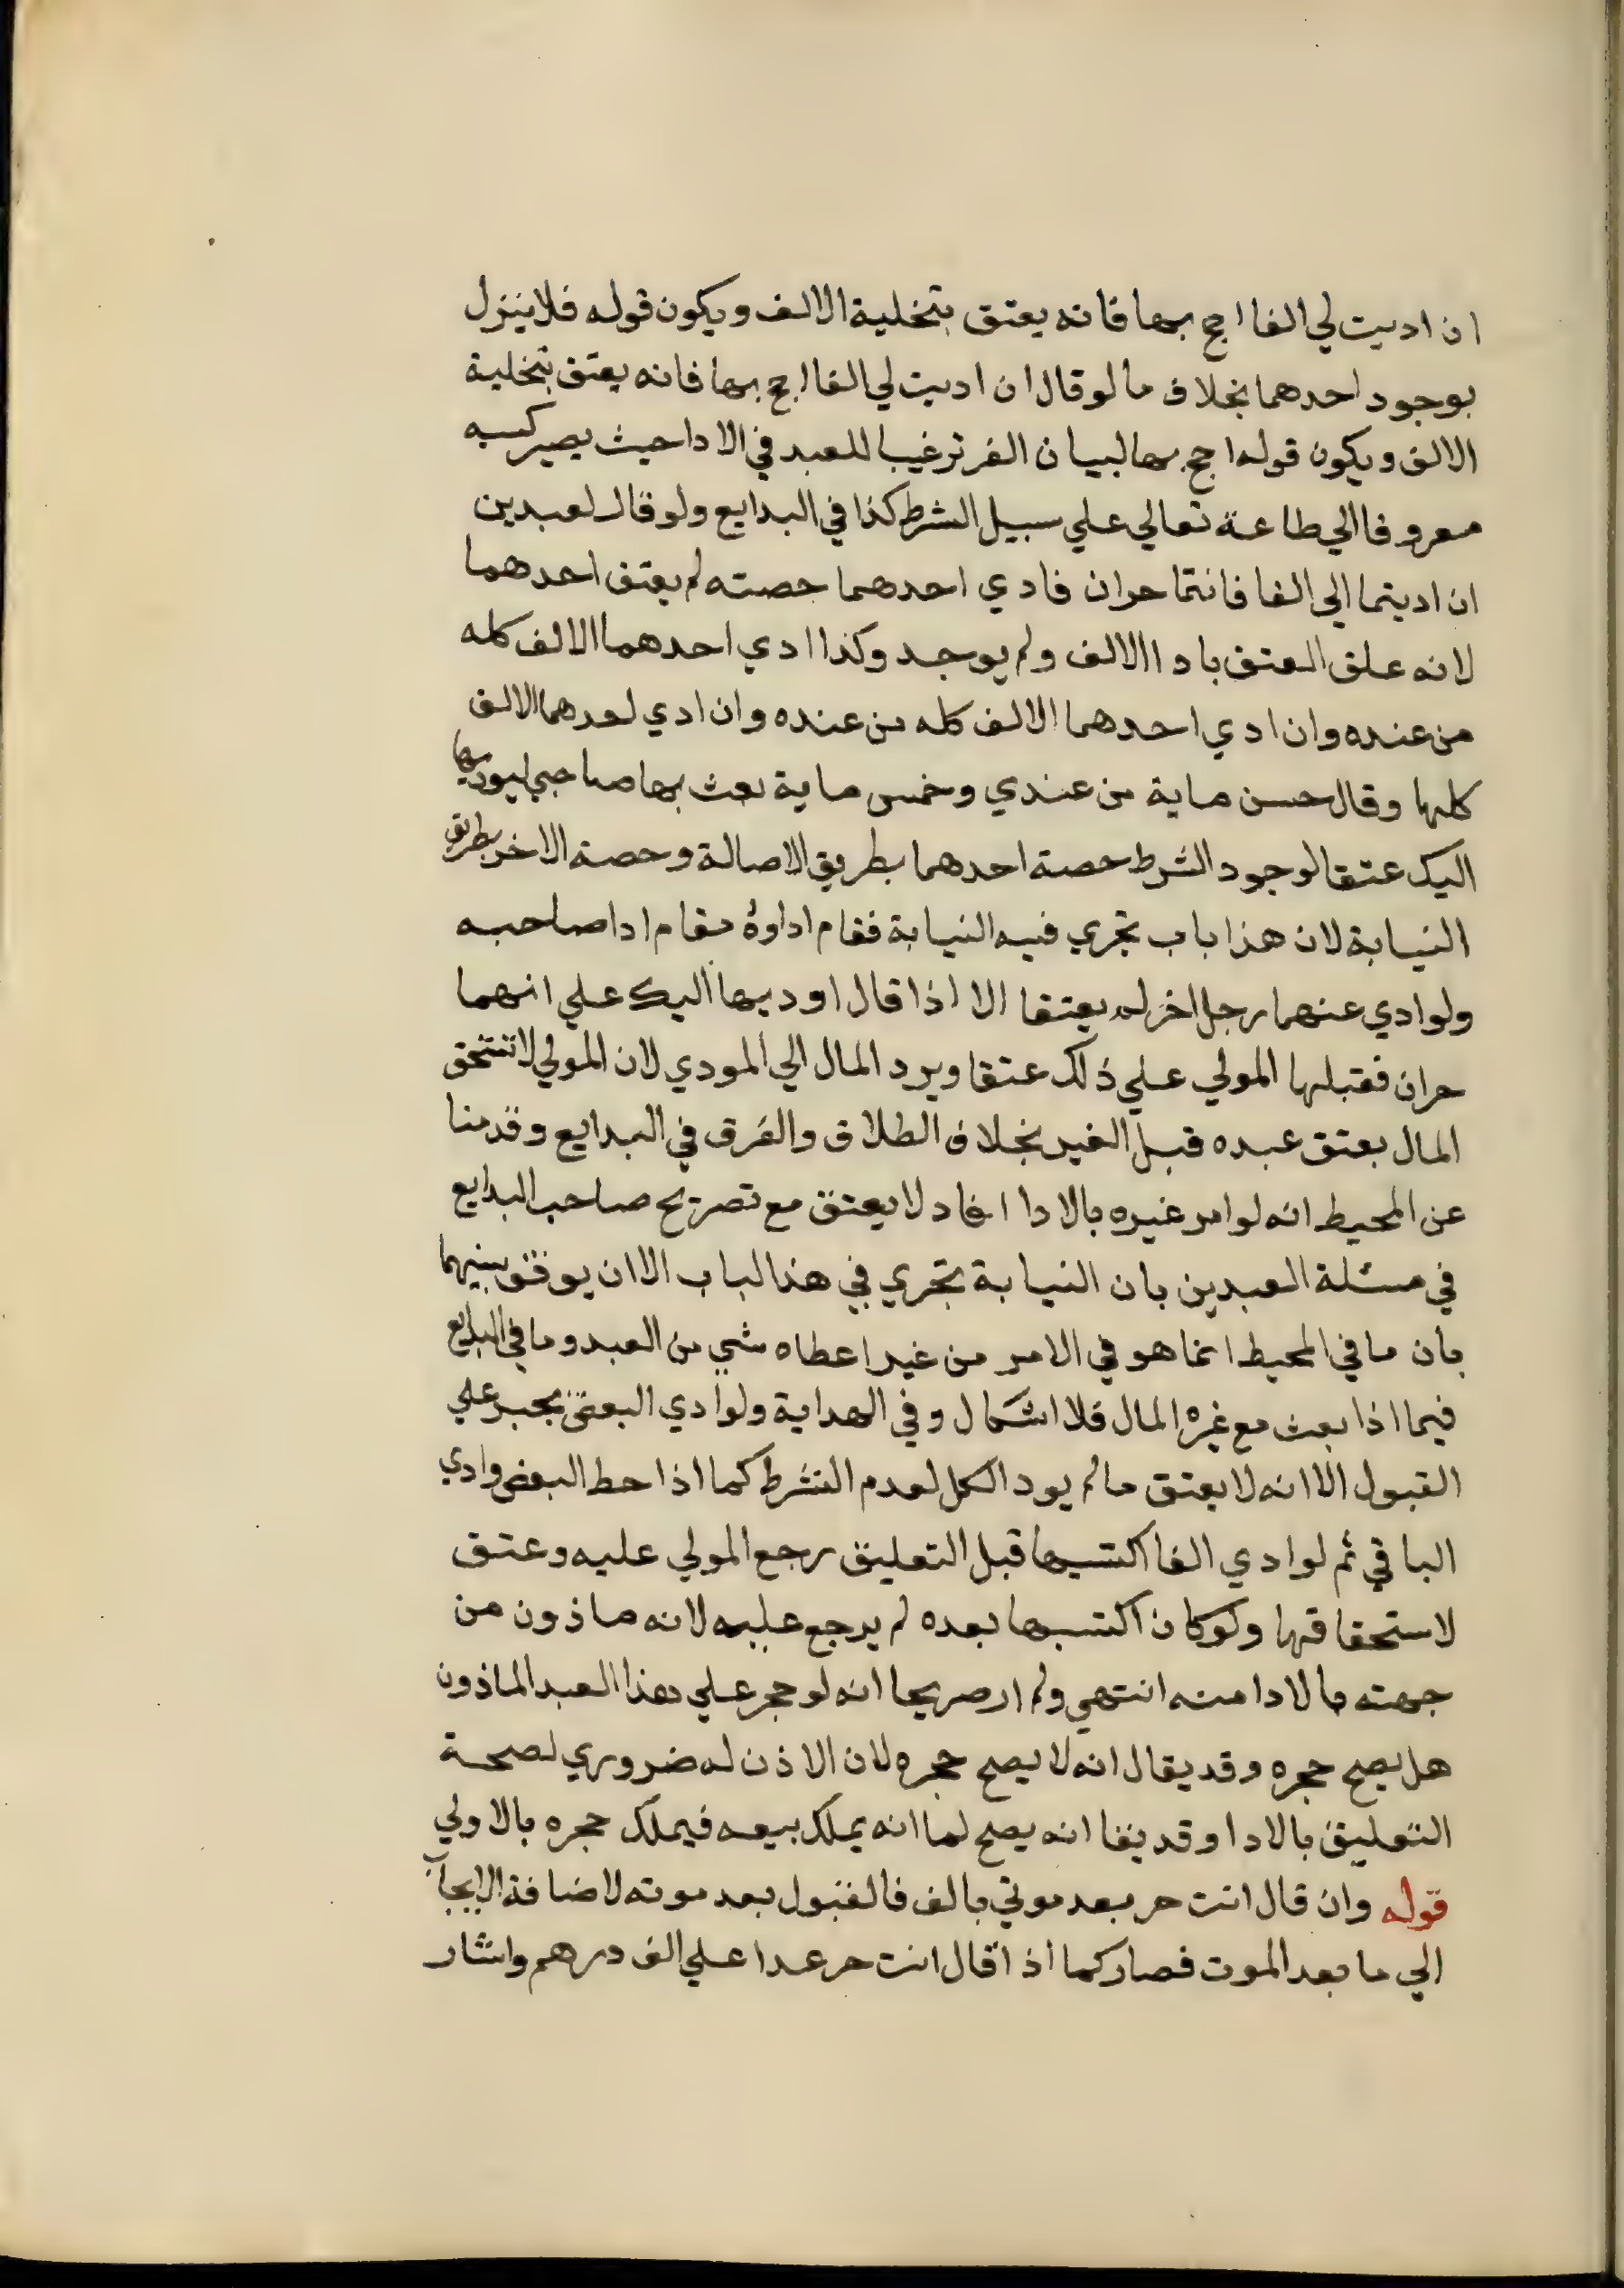 ان اديت لي الفا احج بها فانه يعتق بتخلية الالف ويكون قوله فلا ينزل
بوجود احدهما بخلاف ما لو قال ان اديت لي الفا احج بها فانه يعتق بتخلية
الالف ويكون قوله احج بها لبيان الغر ترغيبا للعبد في الادا حيث يصير كسبه
معروفا الي طاعة تعالي علي سبيل الشرط كذا في البدايع ولو قال لعبدين
ان اديتما الي الفا فانتما حران فادي احدهما حصته لم يعتق احدهما
لانه علق العتق بادا الالف ولم يوجد وكذا ادي احدهما الالف كله
من عنده وان ادي احدهما الالف كله من عنده وان ادي احدهما الالف
كلها وقال خمس ماية من عندي وخمس ماية بعث بها صاحبي ليوديها
اليك عتقا لوجود الشرط حصة احدهما بطريق الاصالة وحصة الاخر بطريق
النيابة لان هذا باب تجري فيه النيابة فقام اداوه مقام ادا صاحبه
ولو ادي عنهما رجل اخر لم يعتقا الا اذا قال اوديها اليك علي انهما
حران فقبلها المولي علي ذلك عتقا ويرد المال الي المودي لان المولي لا تستحق
المال بعتق عبده قبل الغير بخلاف الطلاق والفرق في البدايع وقدمنا
عن المحيط انه لو امر غيره بالادا افاد لا يعتق مع تصريح صاحب البدايع
في مسئلة العبدين بان النيابة تجري في هذا الباب الا ان يوفق بينهما
بان ما في المحيط انما هو في الامر من غير اعطاه شي من العبد وما في البدايع
فيما اذا بعث مع غيره المال فلا اشكال وفي الهداية ولو ادي البعض يجبر علي
القبول الا انه لا يعتق ما لم يود الكل لعدم الشرط كما اذا حط البعض وادي
الباقي ثم لو ادي الفا اكتسبها قبل التعليق رجع المولي عليه وعتق
لاستحقاقها ولو كان اكتسبها بعده لم يرجع عليه لانه ماذون من
جهته بالادا منه انتهي ولم ار صريحا انه لو حجر علي هذا العبد الماذون
هل يصح حجره وقد يقال انه لا يصح حجره لان الاذن له ضروري لصحة
التعليق بالادا وقد يقا انه يصح لما انه يملك بيعه فيملك حجره بالاولي
قوله وان قال انت حر بعد موتي بالف فالقبول بعد موته لاضافة الايجاب
الي ما بعد الموت فصار كما اذا قال انت حر غدا علي الف درهم واشار